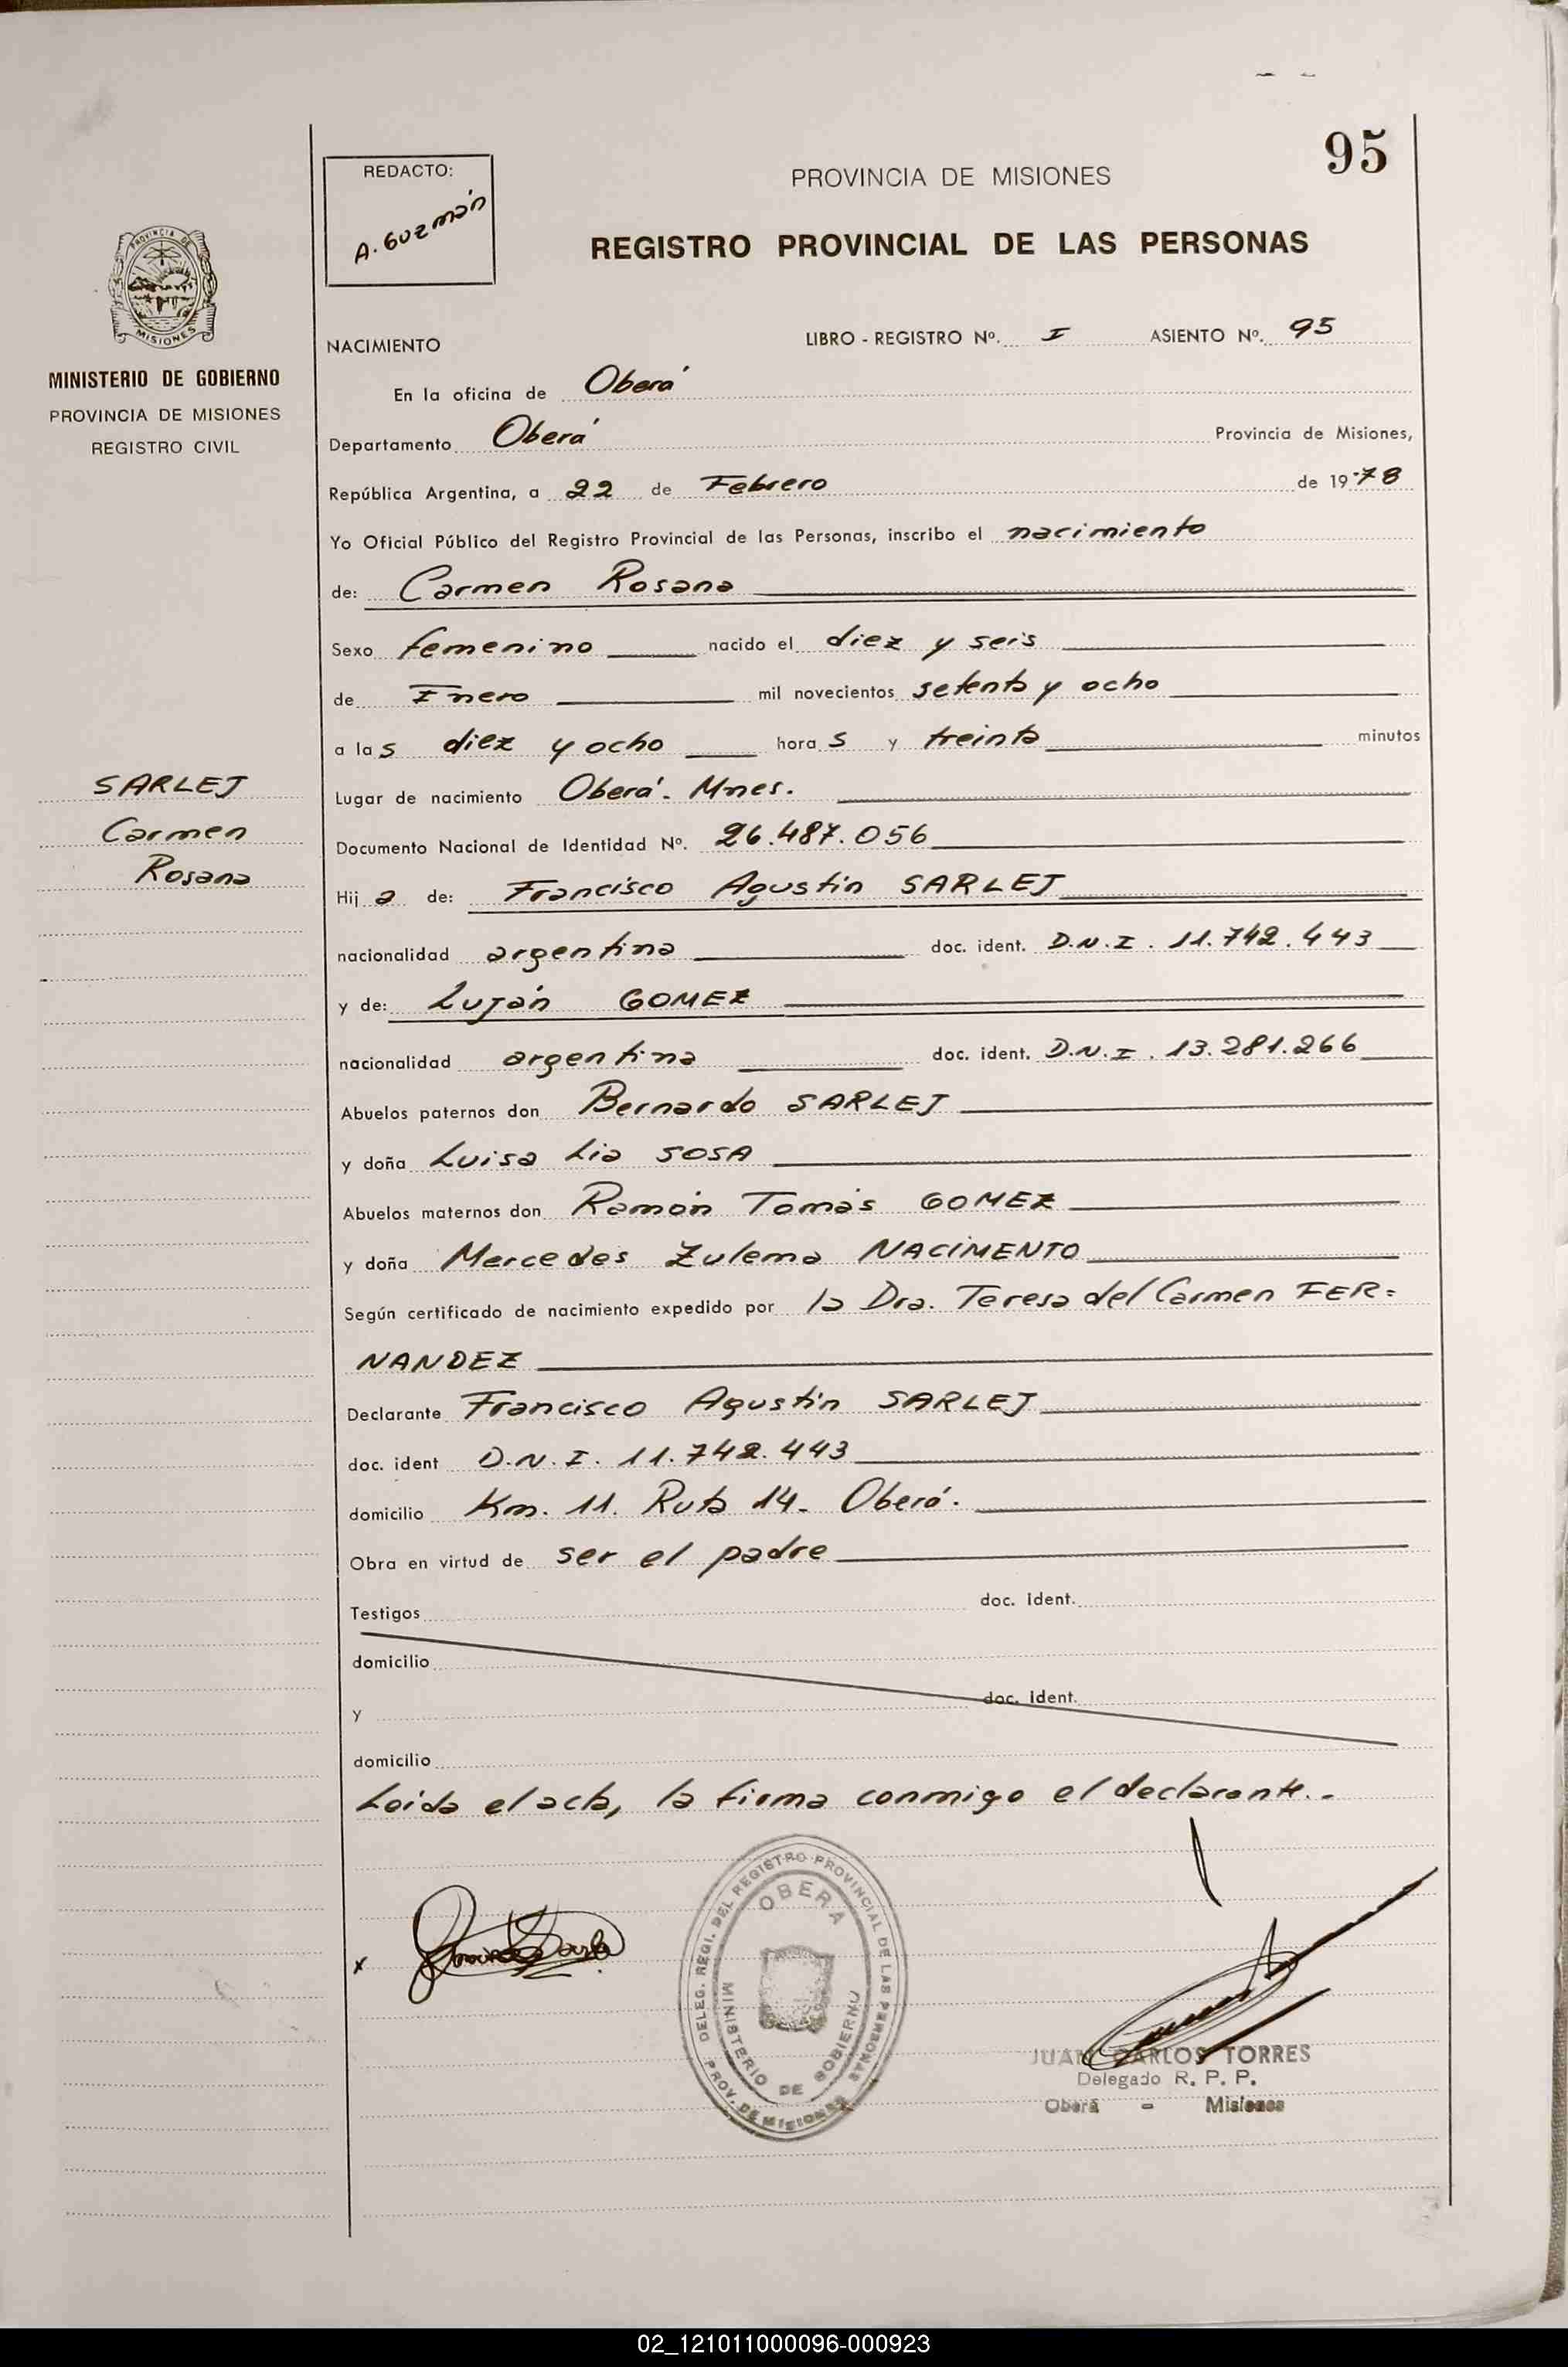 95
REDACTO:
A. GUZMán
PROVINCIA DE MISIONES
REGISTRO PROVINCIAL DE LAS PERSONAS
PROVINCIA DE
MISIONES
MINISTERIO DE GOBIERNO
PROVINCIA DE MISIONES
REGISTRO CIVIL
NACIMIENTO LIBRO - REGISTRO Nº. I ASIENTO Nº. 95
En la oficina de Oberá
Departamento Oberá Provincia de Misiones,
República Argentina, a 22 de Febrero de 1978
Yo Oficial Público del Registro Provincial de las Personas, inscribo el nacimiento
de: Carmen Rosana
Sexo femenino nacido el diez y seis
de Enero mil novecientos setenta y ocho
a las diez y ocho horas y treinta minutos
Lugar de nacimiento Oberá. Mnes.
Documento Nacional de Identidad Nº. 26.487.056
SARLEJ
Carmen
Rosana
Hija de: Francisco Agustín SARLEJ
nacionalidad argentina doc. ident. D.N.I. 11.742.443
y de: Luján GOMEZ
nacionalidad argentina doc. ident. D.N.I. 13.281.266
Abuelos paternos don Bernardo SARLEJ
y doña Luisa Lia SOSA
Abuelos maternos don Ramón Tomás GOMEZ
y doña Mercedes Zulema NACIMENTO
Según certificado de nacimiento expedido por la Dra. Teresa del Carmen FER=
NANDEZ
Declarante Francisco Agustín SARLEJ
doc. ident D.N.I. 11.742.443
domicilio Km. 11. Ruta 14. Oberá.
Obra en virtud de ser el padre
Testigos doc. ident.
domicilio
y doc. ident.
domicilio
Leída el acta, la firma conmigo el declarante..
x
DELEG. REGI. DEL REGISTRO PROVINCIAL DE LAS PERSONAS
OBERA
MINISTERIO DE GOBIERNO
PROV. DE MISIONES
JUAN CARLOS TORRES
Delegado R. P. P.
Oberá - Misiones
02_121011000096-000923